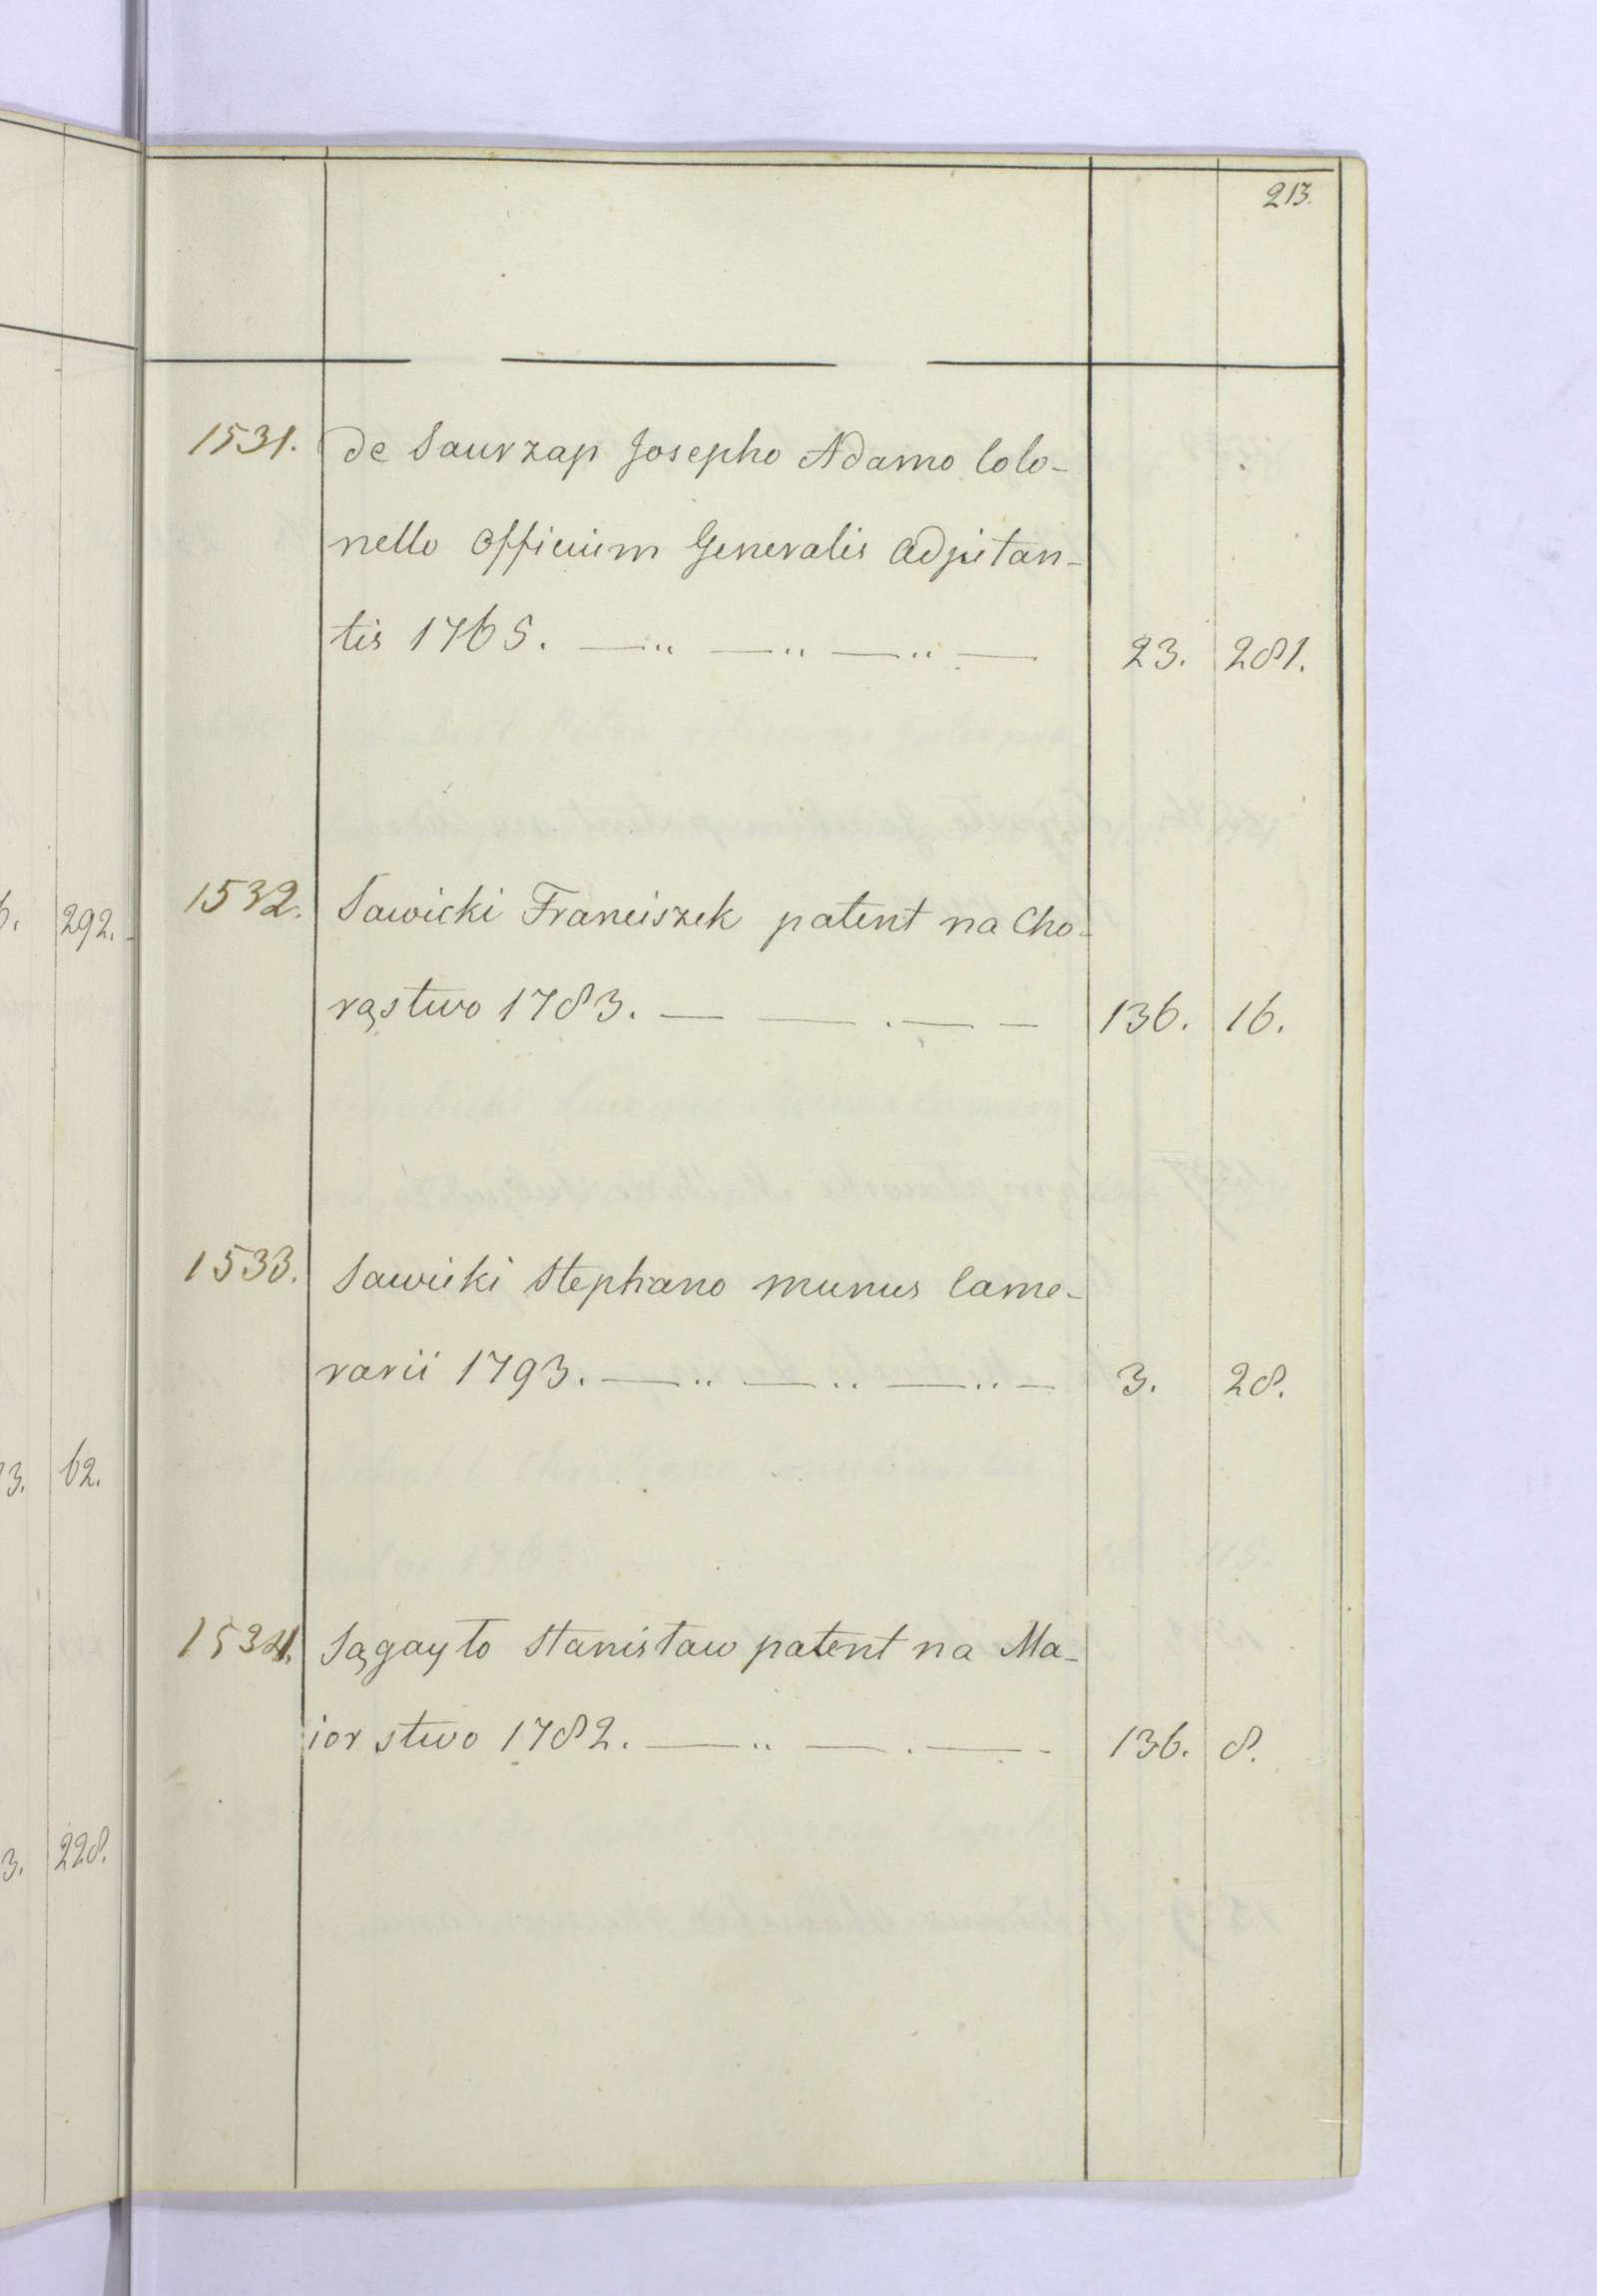 213.
1531. de Saurzap Josepho Adamo Colo-
nello Officium Generalis Adjutan-
tis 1765. 23. 281.
1532. Sawicki Franciszek patent na Cho-
rąstwo 1783. 136. 16.
1533. Sawicki Stephano munus Came-
rarii 1793. 3. 28.
1534. Sągayło Stanisław patent na Ma-
iorstwo 1782. 136. 8.
292.
3. 62.
3. 228.